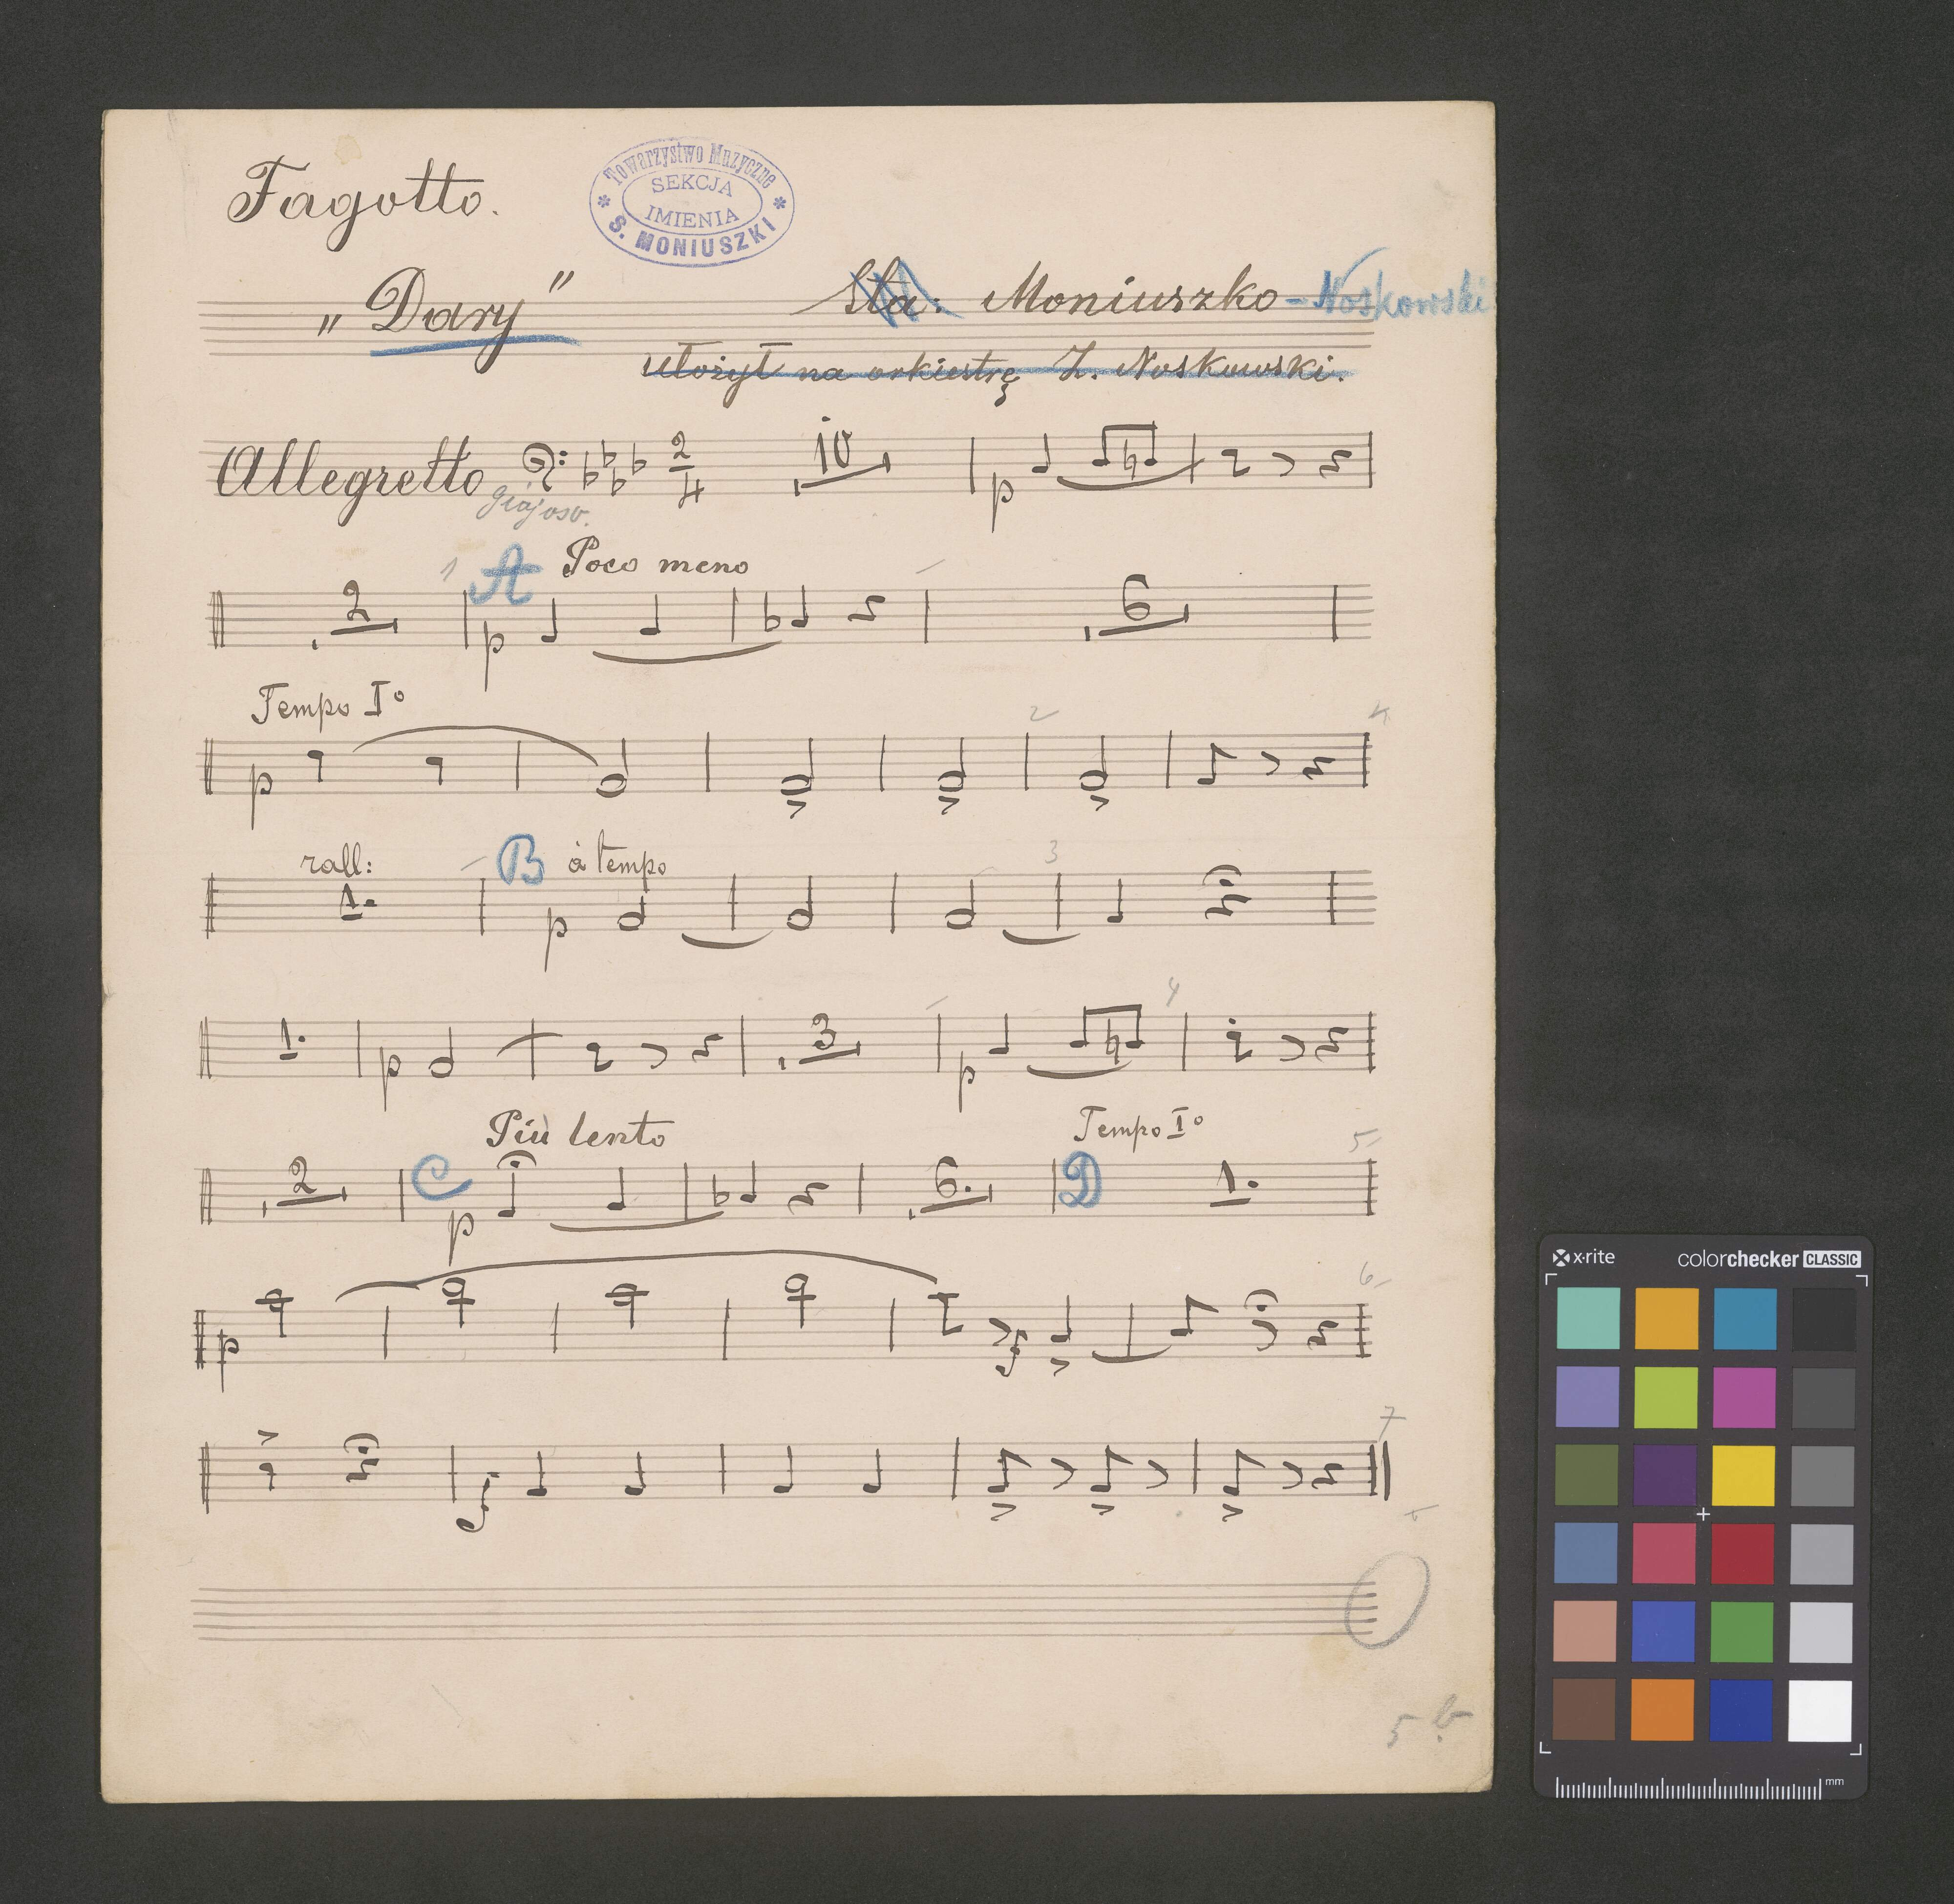 Fagotto.
Towarzystwo Muzyczne
SEKCJA
IMIENIA
S. MONIUSZKI
„Dary" Sta: Moniuszko - Noskowski
ułożył na orkiestrę Z. Noskowski.
Allegretto 2/4 10 p
giojoso.
1 A Poco meno
2 p 6
Tempo Iº
2
p
rall: B à tempo 3
1. p
4
1. p 3 p
Più lento Tempo Iº
2 C p 6. D 1. 5
6
p sf
7
f
5 b
x-rite colorchecker CLASSIC
mm